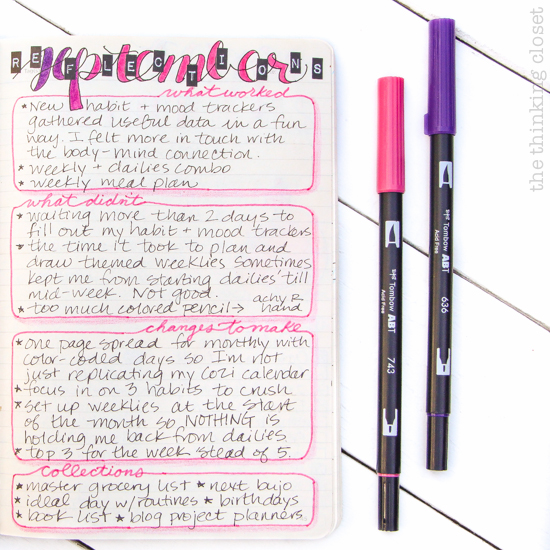 september
REFLECTIONS
what worked
* New habit + mood trackers
gathered useful data in a fun
way. I felt more in touch with
the body-mind connection.
* weekly + dailies combo
* weekly meal plan
what didn't
* waiting more than 2 days to
fill out my habit + mood trackers
* the time it took to plan and
draw themed weeklies sometimes
kept me from starting dailies 'till
mid-week. Not good.
* too much colored pencil → achy R hand
changes to make
* one page spread for monthly with
color-coded days so I'm not
just replicating my Cozi calendar
* focus in on 3 habits to crush
* set up weeklies at the start
of the month so NOTHING is
holding me back from dailies
* top 3 for the week stead of 5
collections
* master grocery list * next bujo
* ideal day w/routines * birthdays
* book list * blog project planners
Tombow ABT
Acid Free
743
Tombow ABT
Acid Free
636
the thinking closet